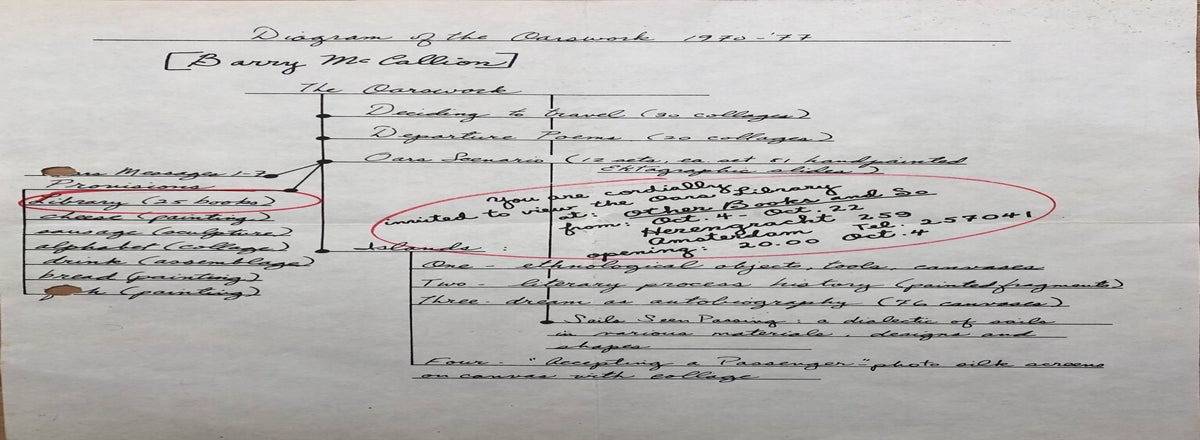 Diagram of the Oarswork 1970-'77
[Barry McCallion]
The Oarswork
Deciding to travel (30 collages)
Departure Poems (20 collages)
Oars Scenario (12 sets, ea. set 81 handpainted
Ektagraphic slides)
Messages 1-7
Provisions
Library (25 books)
cheese (painting)
sausage (sculpture)
alphabet (collage)
drink (assemblage)
bread (painting)
(painting)
You are cordially
invited to view the Oars Library
at: Other Books and So
from: Oct. 4 - Oct 22
Herengracht 259
Amsterdam Tel. 257041
opening: 20.00 Oct. 4
Islands:
One - ethnological objects, tools, canvases
Two - literary process history (painted fragments)
Three - dream as autobiography (76 canvases)
Sails Seen Passing: a dialectic of sails
in various materials, designs and
shapes
Four - "Accepting a Passenger" photo silk screens
on canvas with collage